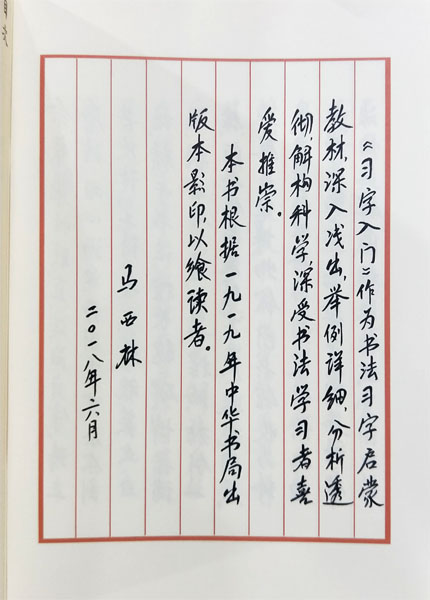 《习字入门》作为书法习字启蒙
教材,深入浅出,举例详细,分析透
彻,解构科学,深受书法学习者喜
爱推崇。
本书根据一九一九年中华书局出
版本影印,以飨读者。
马西林
二〇一八年六月